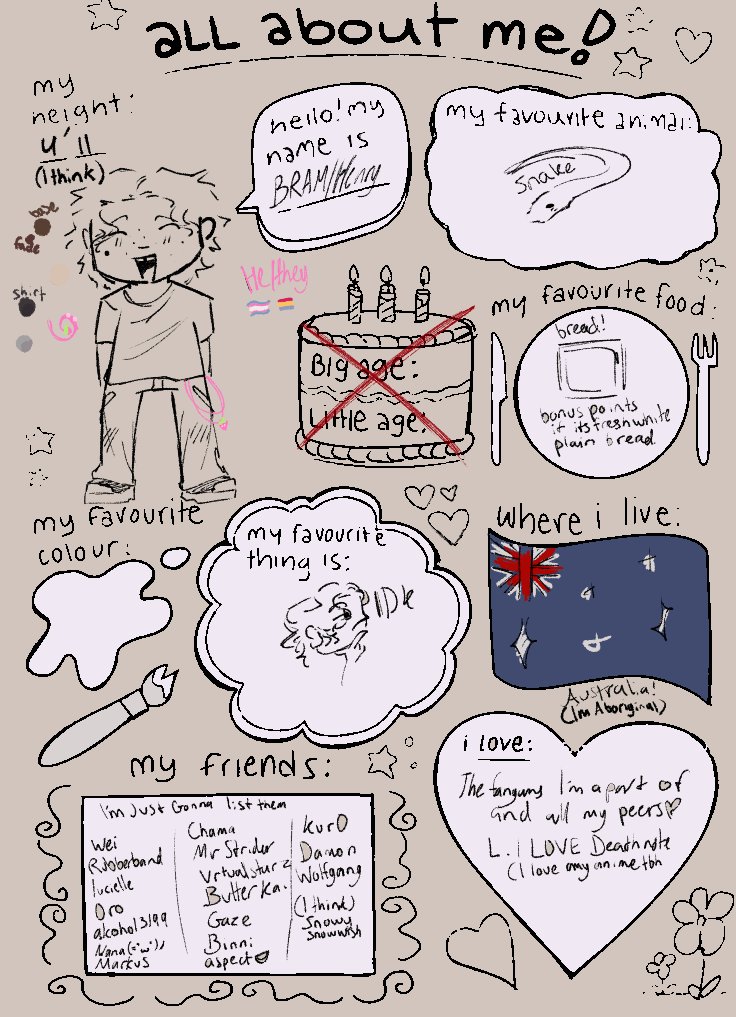 all about me!
my
height:
4'11
(I think)
hello! my
name is
BRAM/Henry
my favourite animal:
snake
base
shirt
He/they
Big age:
Little age:
my favourite food:
bread!
bonus points
if its fresh white
plain bread
my favourite
colour:
my favourite
thing is:
IDK
where i live:
Australia!
(I'm Aboriginal)
my friends:
I'm Just Gonna list them
Wei
Rubberband
lucielle
Oro
alcohol3199
Nana(='w')/
Markus
Chama
Mr Strider
vrtualstarz
Butterka.
Gaze
Binni
aspect
kuro
Damon
Wolfgang
(I think)
Snowy
snowwish
i love:
The fangums I'm a part of
and all my peers
L. I LOVE Deathnote
(I love any anime tbh